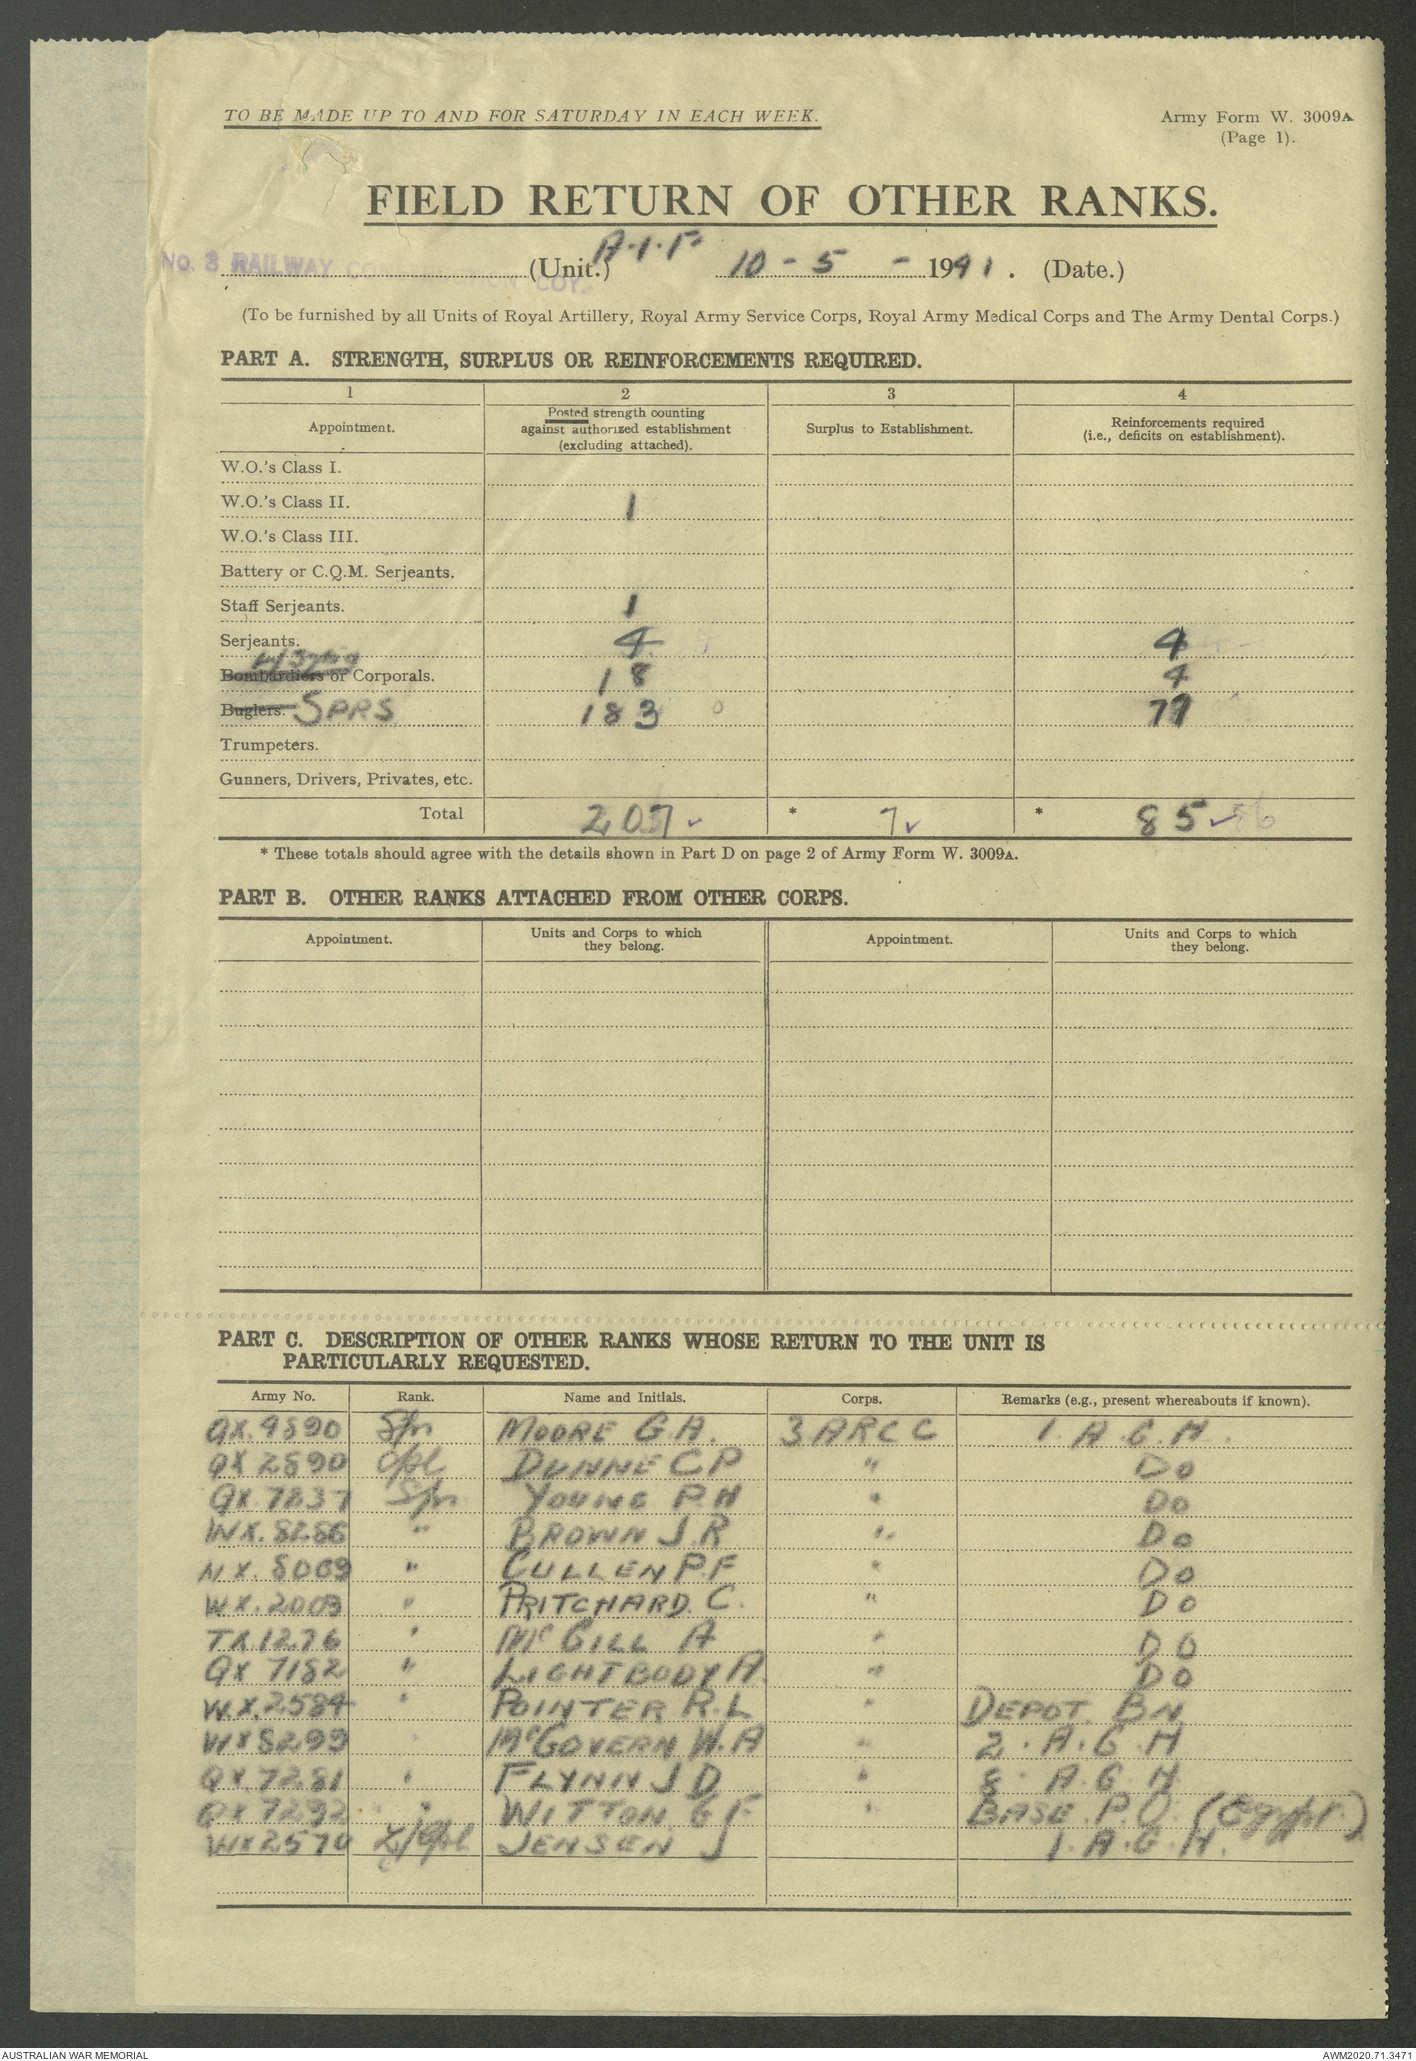 TO BE MADE UP TO AND FOR SATURDAY IN EACH WEEK.
Army Form W. 3009A
(Page 1).
FIELD RETURN OF OTHER RANKS.
NO. 3 RAILWAY CONSTRUCTION COY. (Unit.) A.I.F. 10 - 5 - 1941. (Date.)
(To be furnished by all Units of Royal Artillery, Royal Army Service Corps, Royal Army Medical Corps and The Army Dental Corps.)
PART A. STRENGTH, SURPLUS OR REINFORCEMENTS REQUIRED.
1 2 3 4
Appointment. Posted strength counting against authorized establishment (excluding attached). Surplus to Establishment. Reinforcements required (i.e., deficits on establishment).
W.O.'s Class I.
W.O.'s Class II. 1
W.O.'s Class III.
Battery or C.Q.M. Serjeants.
Staff Serjeants. 1
Serjeants. 4 4
Bombardiers or Corporals. 18 4
Buglers. SPRS 183 77
Trumpeters.
Gunners, Drivers, Privates, etc.
Total 207 * 7 * 85 86
* These totals should agree with the details shown in Part D on page 2 of Army Form W. 3009A.
PART B. OTHER RANKS ATTACHED FROM OTHER CORPS.
Appointment. Units and Corps to which they belong. Appointment. Units and Corps to which they belong.
PART C. DESCRIPTION OF OTHER RANKS WHOSE RETURN TO THE UNIT IS
PARTICULARLY REQUESTED.
Army No. Rank. Name and Initials. Corps. Remarks (e.g., present whereabouts if known).
QX.9890 Spr MOORE G.A. 3 ARCC 1. A.G.H.
QX 2890 Cpl DUNNE C P " Do
QX.7837 Spr YOUNG P.H " Do
WX.8286 " BROWN J.R " Do
NX.8009 " CULLEN P.F " Do
WX.2009 " PRITCHARD. C. " Do
TX.1276 " McGILL A " DO
QX 7182 " LIGHTBODY A. " DO
WX.2584 " POINTER R.L " DEPOT. BN
WX8299 McGOVERN W.A " 2. A.G.H
QX 7281 " FLYNN J D " 8. A.G.H
QX 7292 " WITTON. G F " BASE. P.O. (Egypt.)
WX2570 L/Cpl JENSEN J 1. A.G.H.
AUSTRALIAN WAR MEMORIAL
AWM2020.71.3471